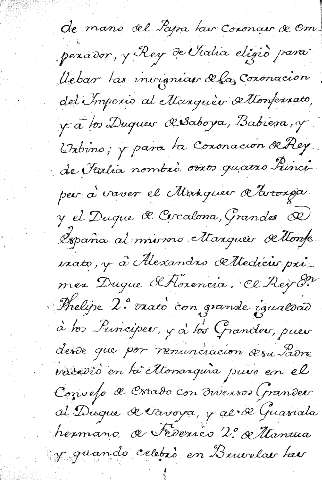 de mano del Papa las Coronas de Em
perador, y Rey de Italia eligió para
llebar las insignias de la Coronacion
del Imperio al Marques de Monferrato,
y á los Duques de Saboya, Babiera, y
Urbino; y para la Coronacion de Rey
de Italia nombró otros quatro Princi
pes á saver el Marques de Astorga
y el Duque de Escalona, Grandes de
España al mismo Marques de Monfe
rrato, y á Alexandro de Medicis pri-
mer Duque de Florencia. el Rey Dn
Phelipe 2.º trató con grande igualdad
á los Principes, y á los Grandes, pues
desde que por renunciacion de su Padre
sucedió en la Monarquia puso en el
Consejo de Estado con diversos Grandes
al Duque de Savoya, y al de Guastala
hermano de Federico 2.º de Mantua
y quando celebró en Bruselas las